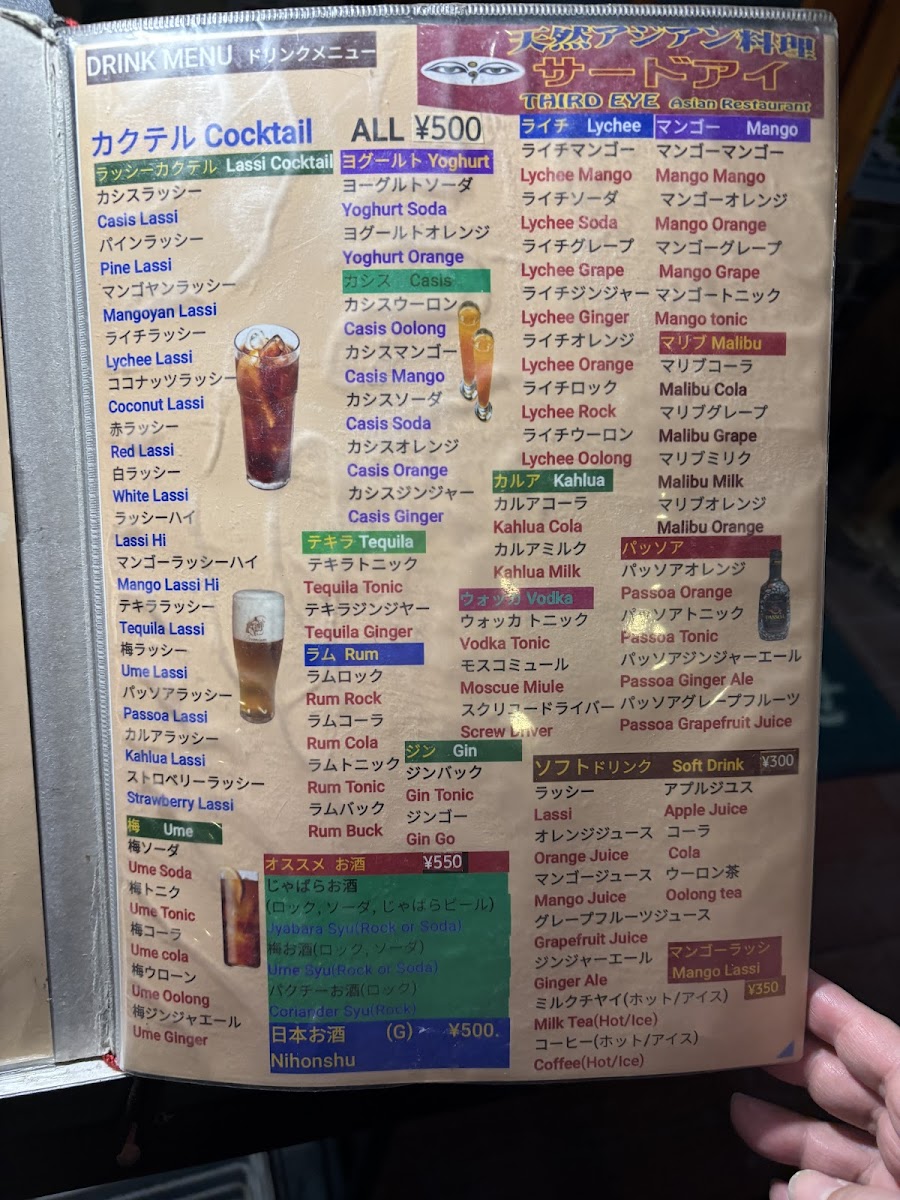 DRINK MENU ドリンクメニュー
天然アジアン料理
サードアイ
THIRD EYE Asian Restaurant
カクテル Cocktail ALL ¥500
ラッシーカクテル Lassi Cocktail
カシスラッシー
Casis Lassi
パインラッシー
Pine Lassi
マンゴヤンラッシー
Mangoyan Lassi
ライチラッシー
Lychee Lassi
ココナッツラッシー
Coconut Lassi
赤ラッシー
Red Lassi
白ラッシー
White Lassi
ラッシーハイ
Lassi Hi
マンゴーラッシーハイ
Mango Lassi Hi
テキララッシー
Tequila Lassi
梅ラッシー
Ume Lassi
パッソアラッシー
Passoa Lassi
カルアラッシー
Kahlua Lassi
ストロベリーラッシー
Strawberry Lassi
梅 Ume
梅ソーダ
Ume Soda
梅トニク
Ume Tonic
梅コーラ
Ume cola
梅ウローン
Ume Oolong
梅ジンジャエール
Ume Ginger
ヨグールト Yoghurt
ヨーグルトソーダ
Yoghurt Soda
ヨグールトオレンジ
Yoghurt Orange
カシス Casis
カシスウーロン
Casis Oolong
カシスマンゴー
Casis Mango
カシスソーダ
Casis Soda
カシスオレンジ
Casis Orange
カシスジンジャー
Casis Ginger
テキラ Tequila
テキラトニック
Tequila Tonic
テキラジンジヤー
Tequila Ginger
ラム Rum
ラムロック
Rum Rock
ラムコーラ
Rum Cola
ラムトニック
Rum Tonic
ラムバック
Rum Buck
ジン Gin
ジンバック
Gin Tonic
ジンゴー
Gin Go
オススメ お酒 ¥550
じゃばらお酒
(ロック, ソーダ, じゃばらビール)
Jyabara Syu(Rock or Soda)
梅お酒(ロック, ソーダ)
Ume Syu(Rock or Soda)
パクチーお酒(ロック)
Coriander Syu(Rock)
日本お酒 (G) ¥500.
Nihonshu
ライチ Lychee
ライチマンゴー
Lychee Mango
ライチソーダ
Lychee Soda
ライチグレープ
Lychee Grape
ライチジンジャー
Lychee Ginger
ライチオレンジ
Lychee Orange
ライチロック
Lychee Rock
ライチウーロン
Lychee Oolong
カルア Kahlua
カルアコーラ
Kahlua Cola
カルアミルク
Kahlua Milk
ウォッカ Vodka
ウォッカ トニック
Vodka Tonic
モスコミュール
Moscue Miule
スクリュードライバー
Screw Driver
マンゴー Mango
マンゴーマンゴー
Mango Mango
マンゴーオレンジ
Mango Orange
マンゴーグレープ
Mango Grape
マンゴートニック
Mango tonic
マリブ Malibu
マリブコーラ
Malibu Cola
マリブグレープ
Malibu Grape
マリブミリク
Malibu Milk
マリブオレンジ
Malibu Orange
パッソア
パッソアオレンジ
Passoa Orange
パッソアトニック
Passoa Tonic
パッソアジンジャーエール
Passoa Ginger Ale
パッソアグレープフルーツ
Passoa Grapefruit Juice
ソフトドリンク Soft Drink ¥300
ラッシー
Lassi
オレンジジュース
Orange Juice
マンゴージュース
Mango Juice
グレープフルーツジュース
Grapefruit Juice
ジンジャーエール
Ginger Ale
ミルクチヤイ(ホット/アイス)
Milk Tea(Hot/Ice)
コーヒー(ホット/アイス)
Coffee(Hot/Ice)
アプルジユス
Apple Juice
コーラ
Cola
ウーロン茶
Oolong tea
マンゴーラッシ
Mango Lassi
¥350